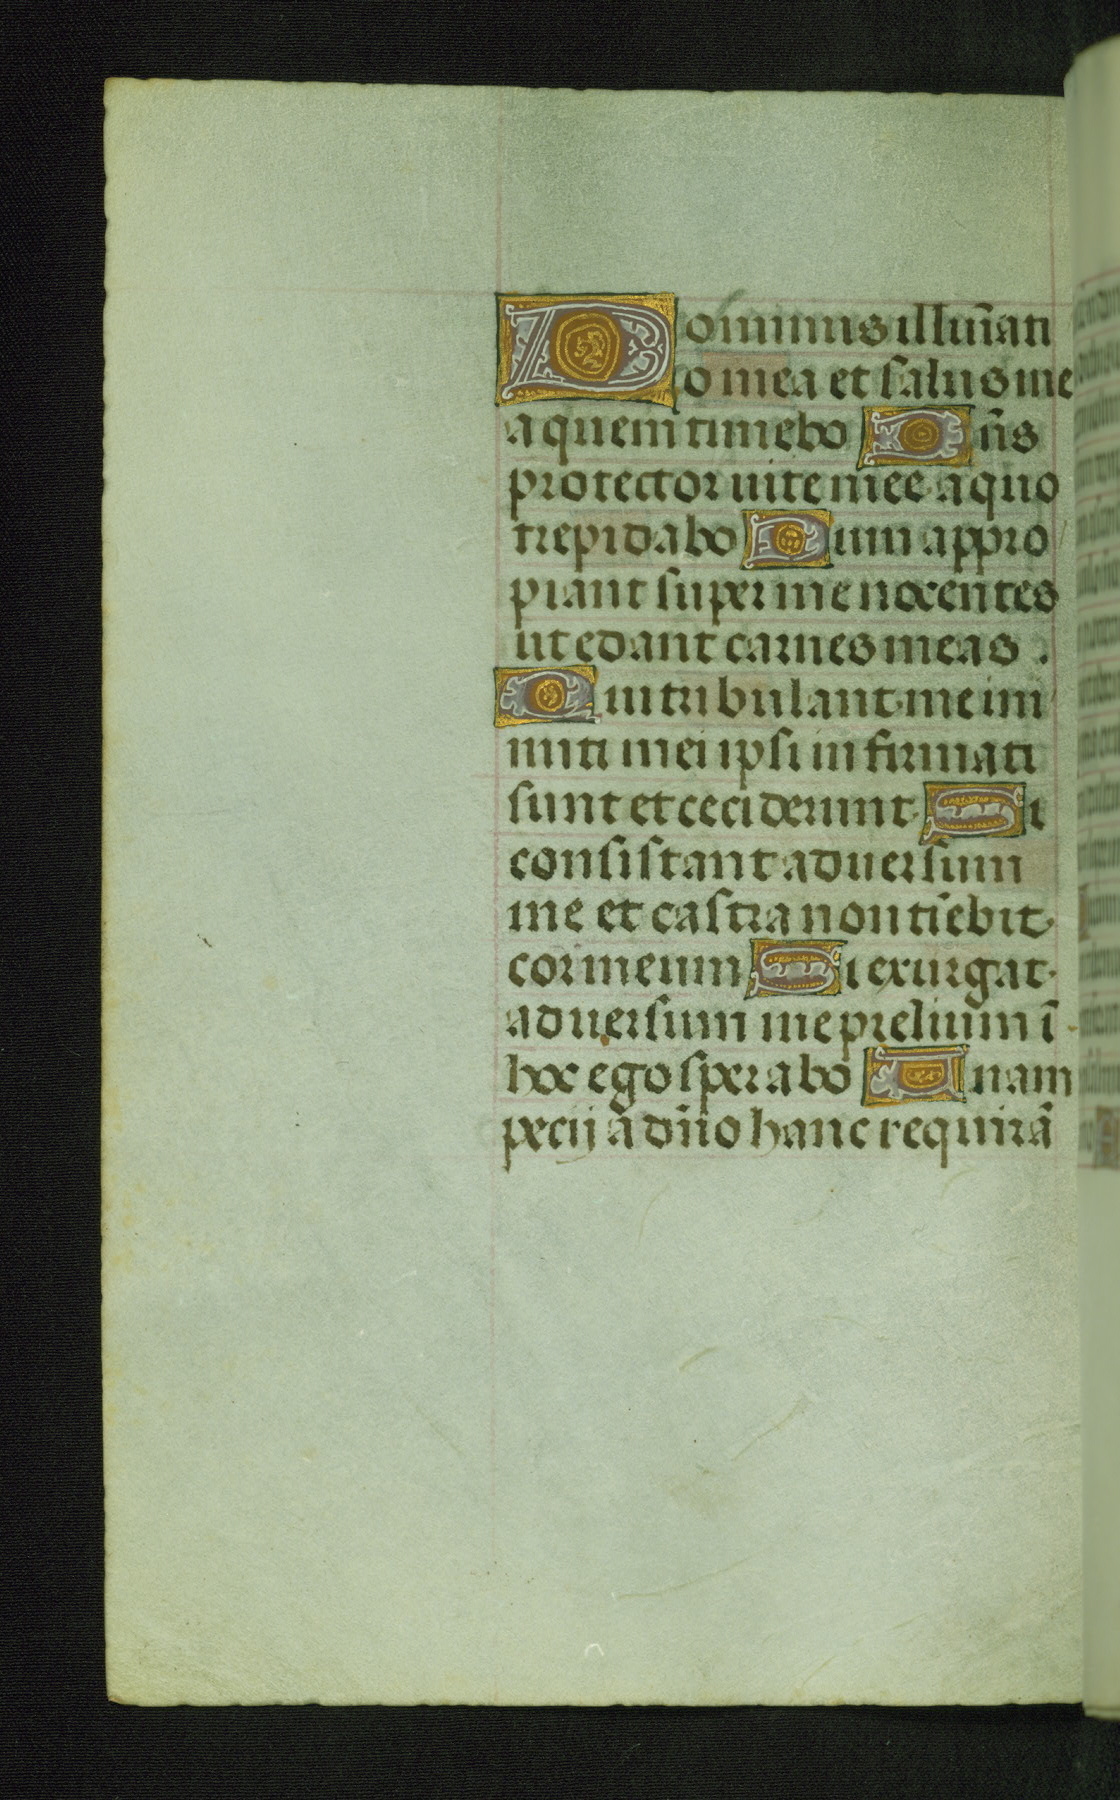 Dominus illum̄ati
o mea et salus me
a quem timebo Dn̄s
protector uite mee a quo
trepidabo Dum appro
piant super me nocentes
ut edant carnes meas .
Qui tribulant me ini
miti mei ipsi infirmati
sunt et ceciderunt Si
consistant aduersum
me et castra non tīebit
cor meum Si exurgat
aduersum me prelium ī
hoc ego sperabo Unam
pecij ā dn̄o hanc requirā